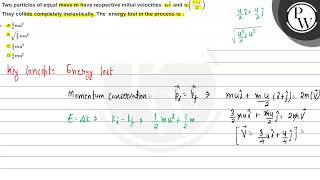 Two particles of equal mass m have respective initial velocities u î and u (î+ĵ/2). They
collide completely inelastically. The energy lost in the process is :
A 1/3 mu²
B √(2/3) mu²
C 3/4 mu²
D 1/8 mu²
Key Concepts Energy lost
Momentum conservation: P⃗i = P⃗f ⇒ mu î + mu/2 (î+ĵ) = 2m(V⃗)
3/2 mu î + mu/2 ĵ = 2m V⃗
E = Δk ⇒ ki − kf ⇒ 1/2 mu² + 1/2 m
[V⃗ = 3/4 u î + u/4 ĵ]
u/2 î + u/2 ĵ
PW